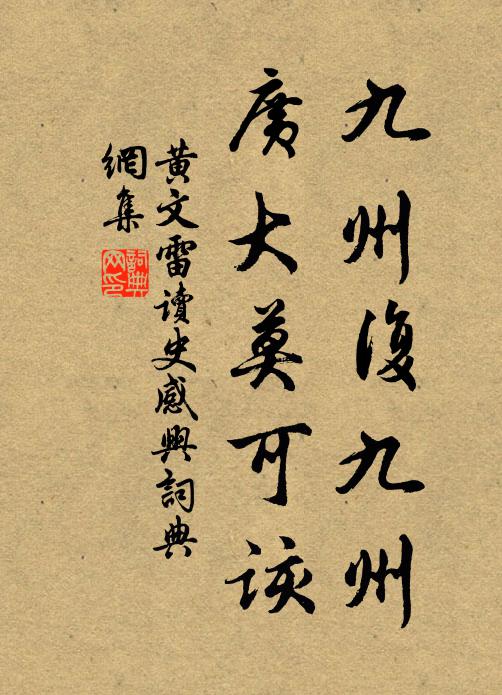 九州復九州
廣大莫可該
黃文雷讀史感興詞典
網集
詞典網印